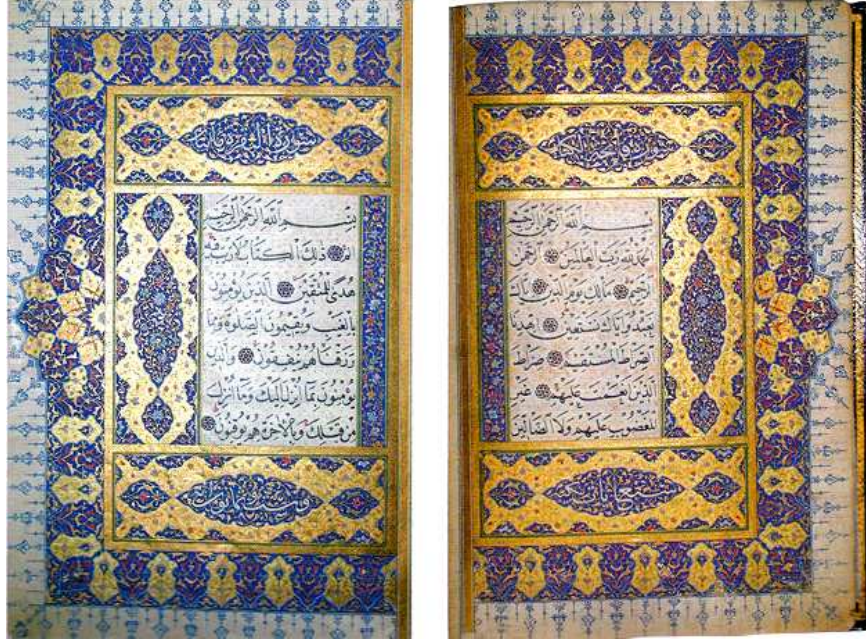 سورة فاتحة الكتاب
بسم الله الرحمن الرحيم
الحمد لله رب العالمين الرحمن
الرحيم مالك يوم الدين اياك
نعبد واياك نستعين اهدنا
الصراط المستقيم صراط
الذين انعمت عليهم غير
المغضوب عليهم ولا الضالين
سبع ايات
سورة البقرة مائتان
بسم الله الرحمن الرحيم
الم ذلك الكتاب لا ريب فيه
هدى للمتقين الذين يؤمنون
بالغيب ويقيمون الصلوة ومما
رزقناهم ينفقون والذين
يؤمنون بما انزل اليك وما انزل
من قبلك وبالاخرة هم يوقنون
وست وثمانون